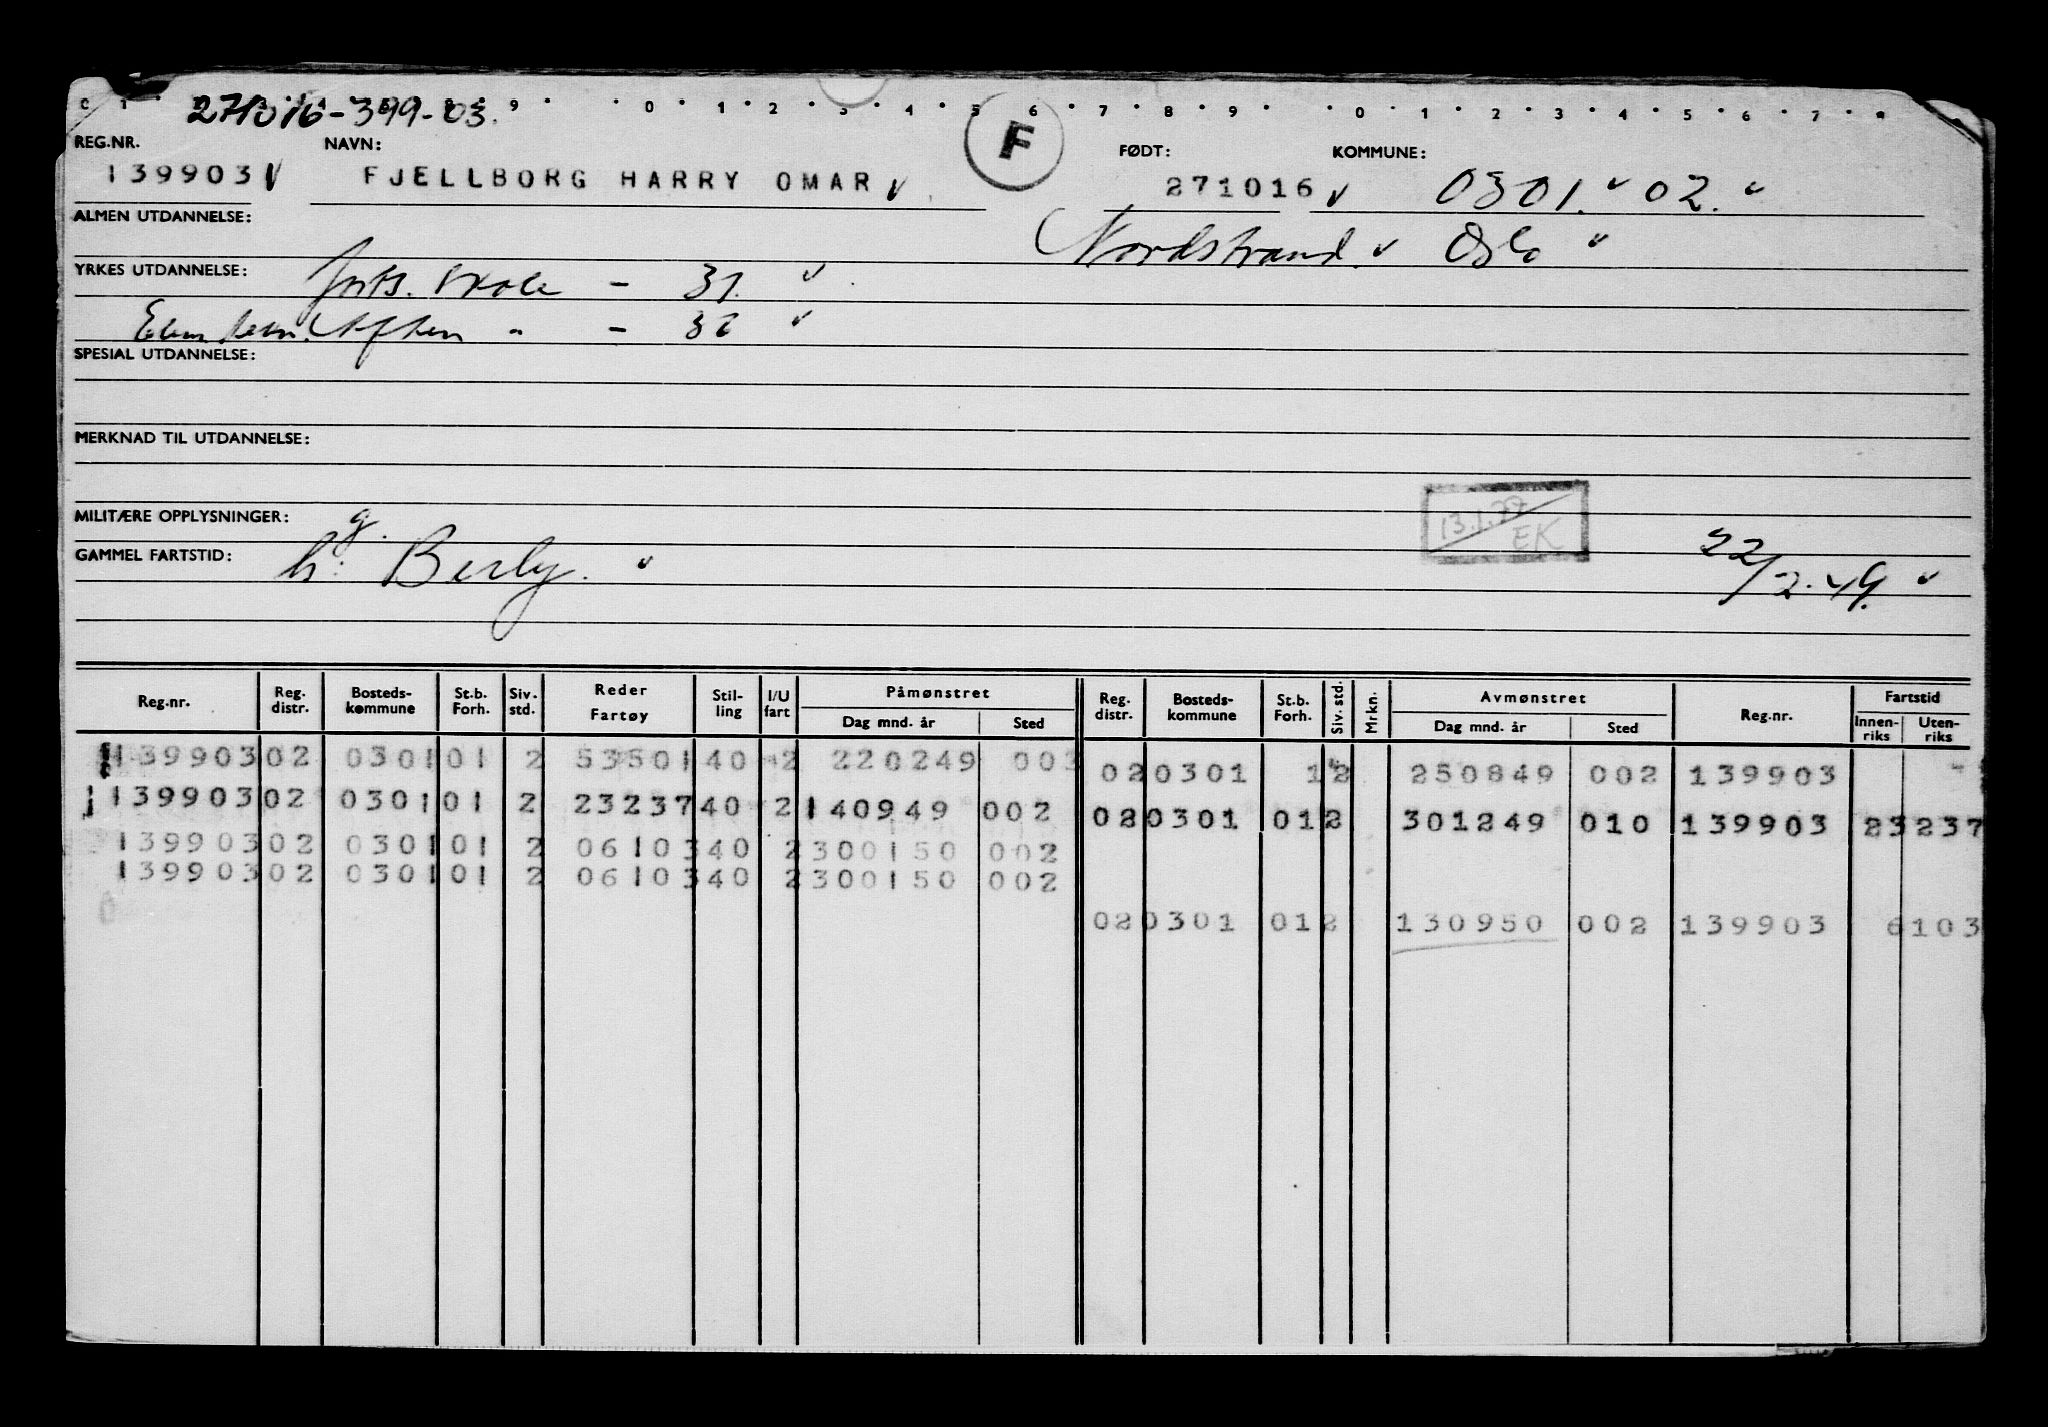 C 1 9 0 1 2 3 4 5 6 7 8 9 0 1 2 3 4 5 6 7
271016-399-03.
F
REG.NR. NAVN: FØDT: KOMMUNE:
139903 FJELLBORG HARRY OMAR 271016 0301. 02.
ALMEN UTDANNELSE: Nordstrand. Oslo
YRKES UTDANNELSE: forts. skole - 31.
Aften " - 36
SPESIAL UTDANNELSE:
MERKNAD TIL UTDANNELSE:
MILITÆRE OPPLYSNINGER: 13.1.77
EK
GAMMEL FARTSTID: 22/2.49.
Reg.nr. Reg. distr. Bosteds-kommune St.b. Forh. Siv. std. Reder Fartøy Stil-ling I/U fart Påmønstret Dag mnd. år Sted Reg. distr. Bosteds-kommune St.b. Forh. Siv. std. Mrkn. Avmønstret Dag mnd. år Sted Reg.nr. Fartstid Innen-riks Uten-riks
139903 02 0301 01 2 53501 40 2 220249 003 02 0301 1 2 250849 002 139903
139903 02 0301 01 2 23237 40 2 140949 002 02 0301 01 2 301249 010 139903 23237
139903 02 0301 01 2 06103 40 2 300150 002
139903 02 0301 01 2 06103 40 2 300150 002
02 0301 01 2 130950 002 139903 6103